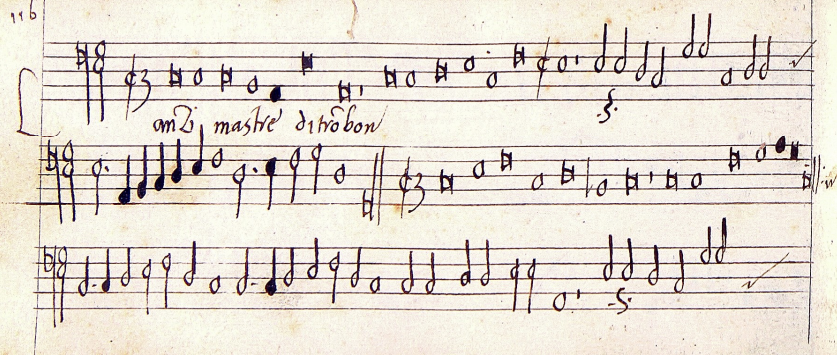 116
anzi mastre di trõbon